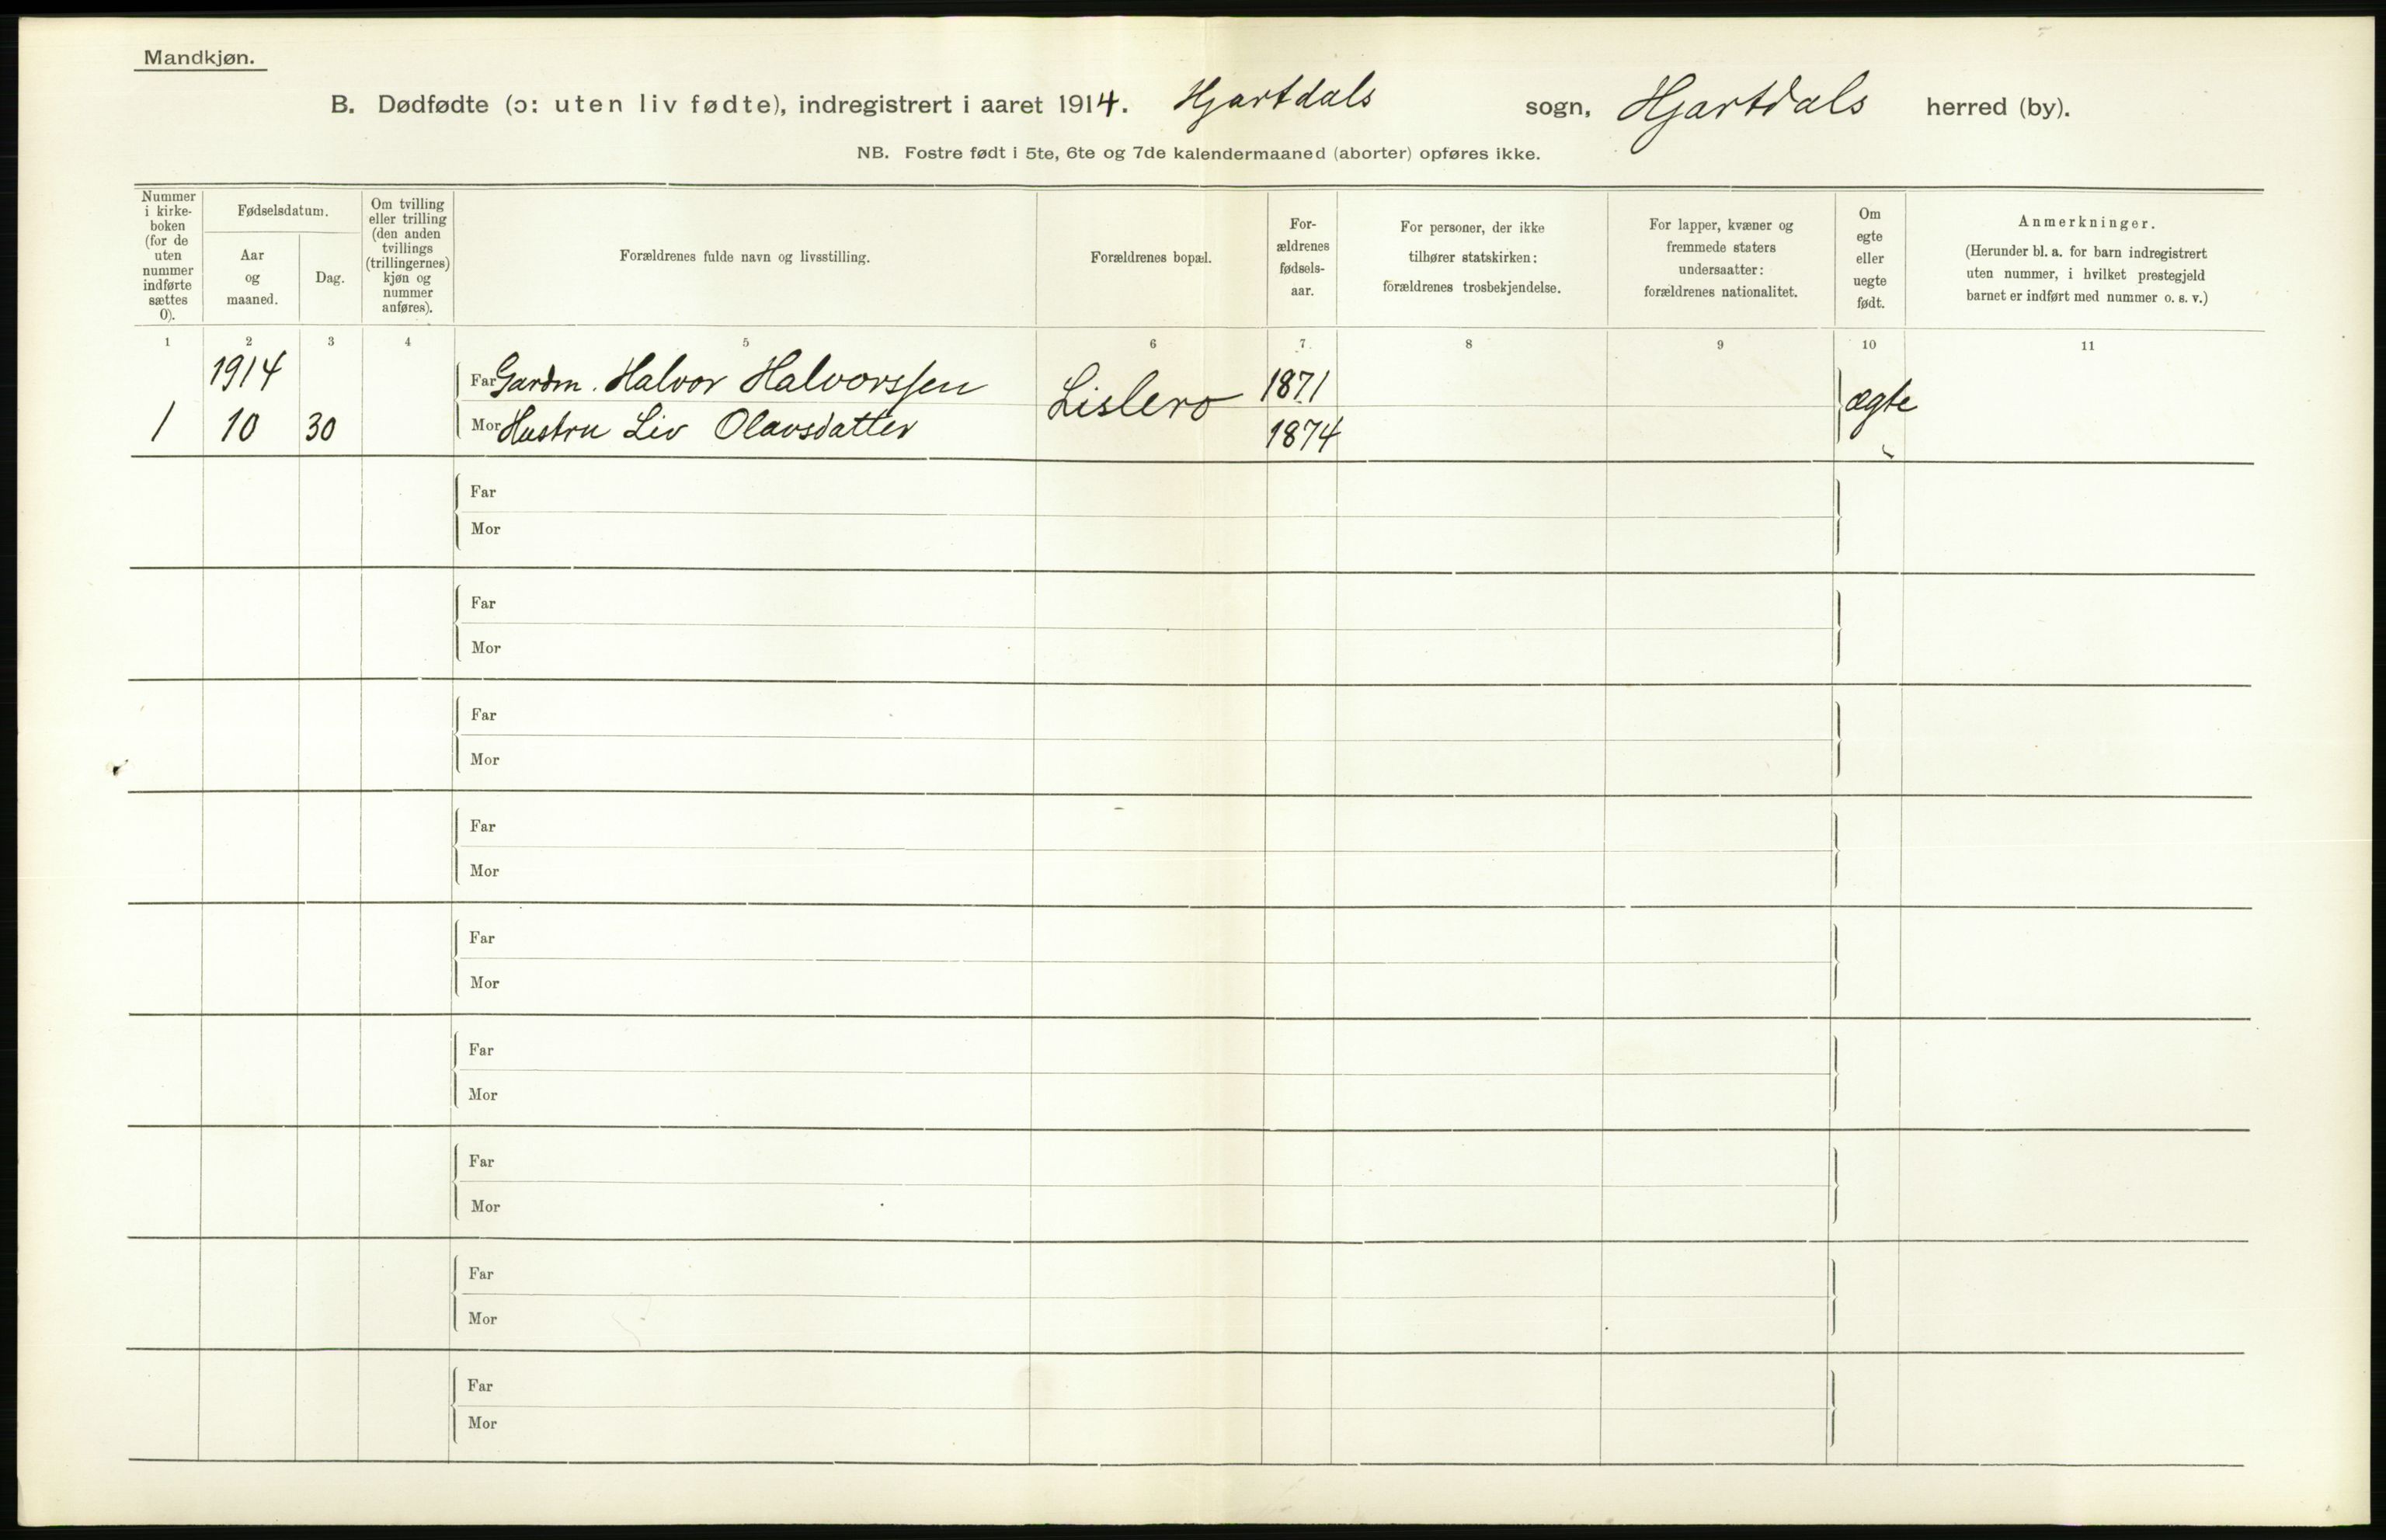 Mandkjøn.
B. Dødfødte (ɔ: uten liv fødte), indregistrert i aaret 1914. Hjartdals sogn, Hjartdals herred (by).
NB. Fostre født i 5te, 6te og 7de kalendermaaned (aborter) opføres ikke.
Nummer
i kirke-
boken
(for de
uten
nummer
indførte
sættes
0).
Fødselsdatum.
Aar
og
maaned.
Dag.
Om tvilling
eller trilling
(den anden
tvillings
(trillingernes)
kjøn og
nummer
anføres).
Forældrenes fulde navn og livsstilling.
Forældrenes bopæl.
For-
ældrenes
fødsels-
aar.
For personer, der ikke
tilhører statskirken:
forældrenes trosbekjendelse.
For lapper, kvæner og
fremmede staters
undersaatter:
forældrenes nationalitet.
Om
egte
eller
uegte
født.
Anmerkninger.
(Herunder bl. a. for barn indregistrert
uten nummer, i hvilket prestegjeld
barnet er indført med nummer o. s. v.)
1 2 3 4 5 6 7 8 9 10 11
1914 Far Gardm. Halvor Halvorssen Lislero 1871 ægte
1 10 30 Mor Hustru Liv Olavsdatter 1874
Far
Mor
Far
Mor
Far
Mor
Far
Mor
Far
Mor
Far
Mor
Far
Mor
Far
Mor
Far
Mor